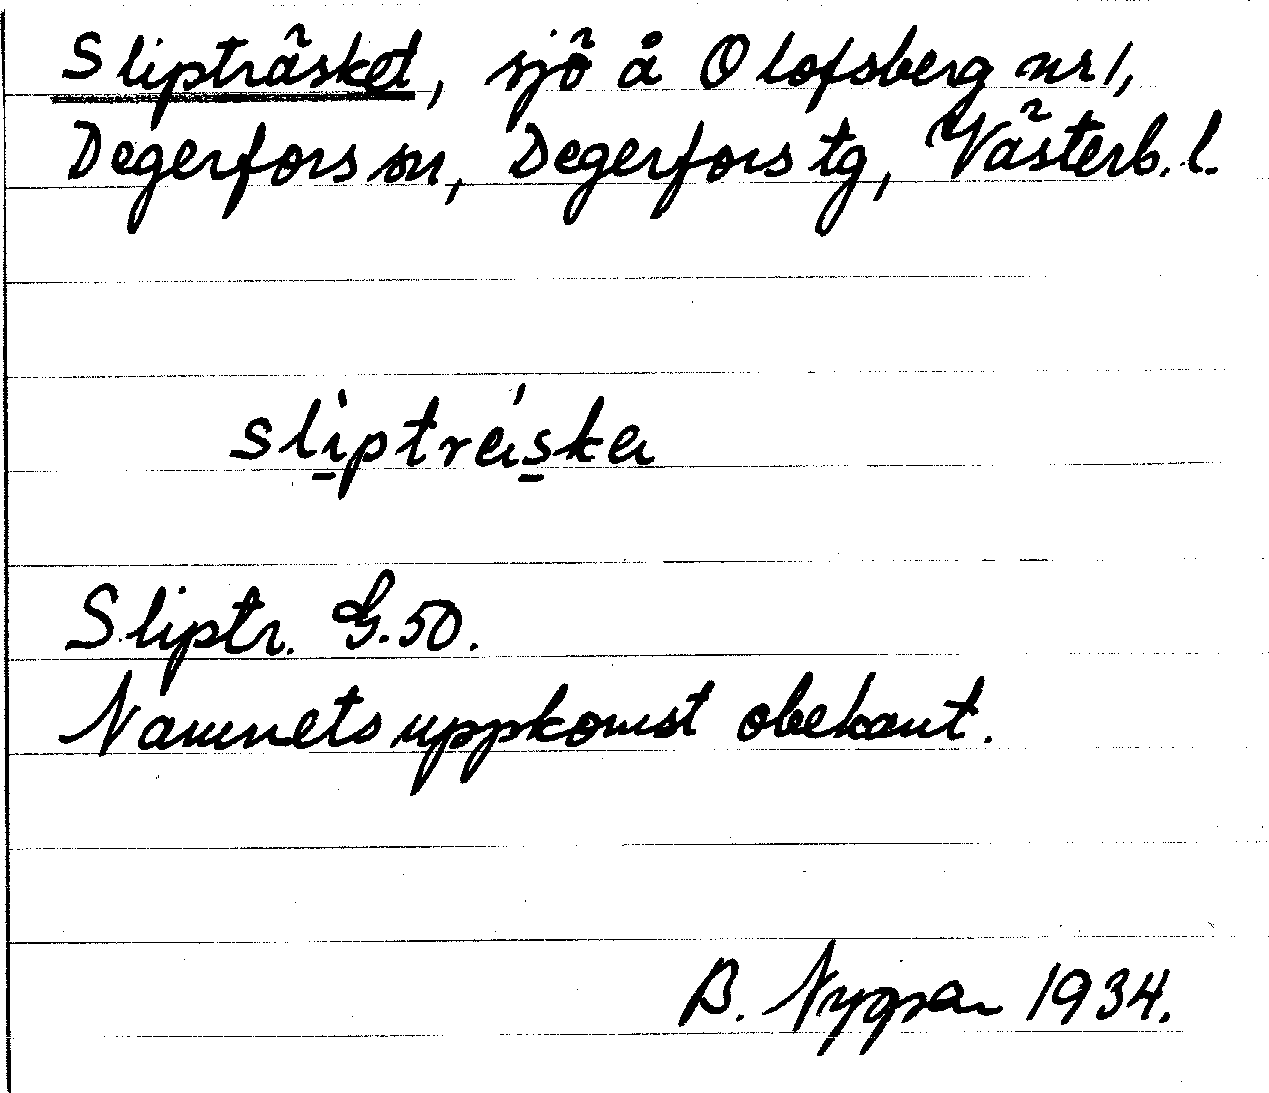 Slipträsket, sjö å Olofsberg nr 1,
Degerfors sn, Degerfors tg, Västerb. l.
Sliptr. G.50.
Namnets uppkomst obekant.
B. 1934.